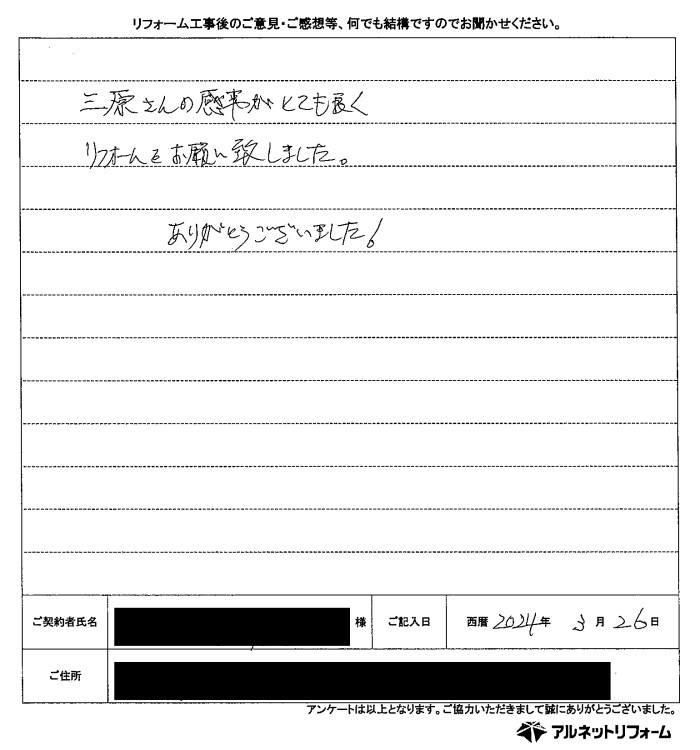 リフォーム工事後のご意見・ご感想等、何でも結構ですのでお聞かせください。
三原さんの感事がとても良く
リフォームをお願い致しました。
ありがとうございました!
ご契約者氏名
様
ご記入日
西暦 2024年 3月 26日
ご住所
アンケートは以上となります。ご協力いただきまして誠にありがとうございました。
アルネットリフォーム